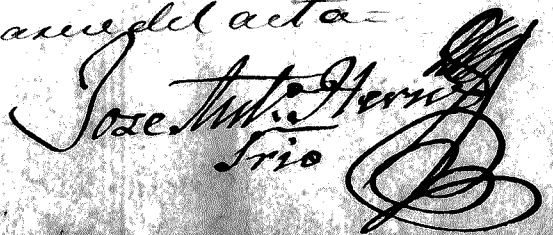 del acta=
Jose Ant.º Hern.z
Srio